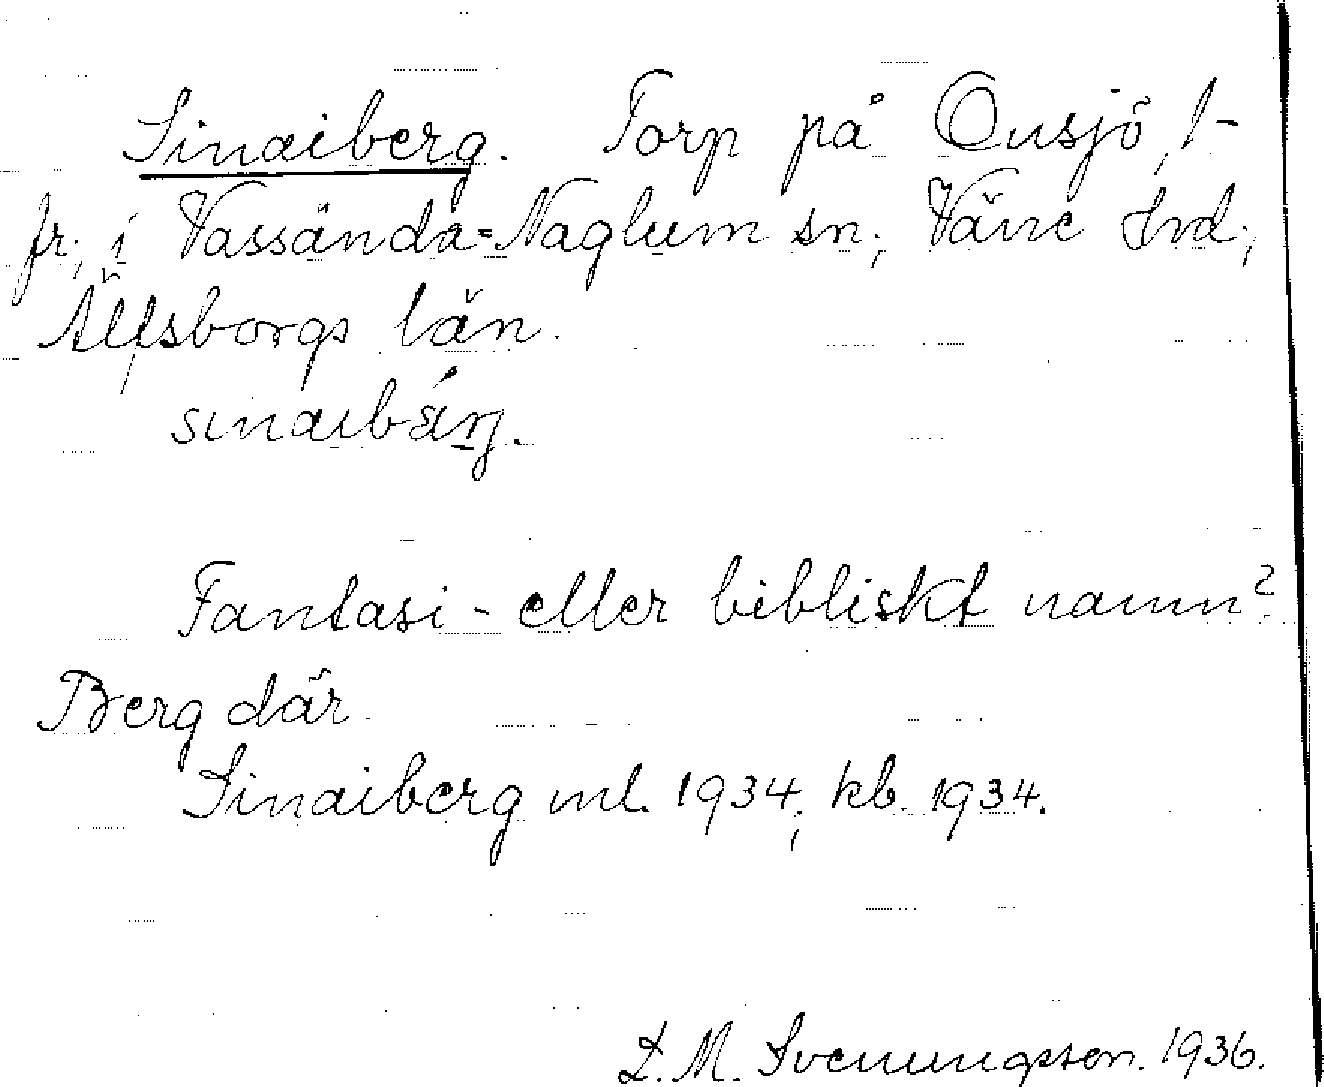 Sinaiberg. Torp på Onsjö, 1-
fr., i Vassända=Naglum sn., Väne hd.,
Älfsborgs län.
sinaibärj.
Fantasi- eller bibliskt namn?
Berg där.
Sinaiberg ml. 1934, kb. 1934.
L. M. Svenungsson. 1936.